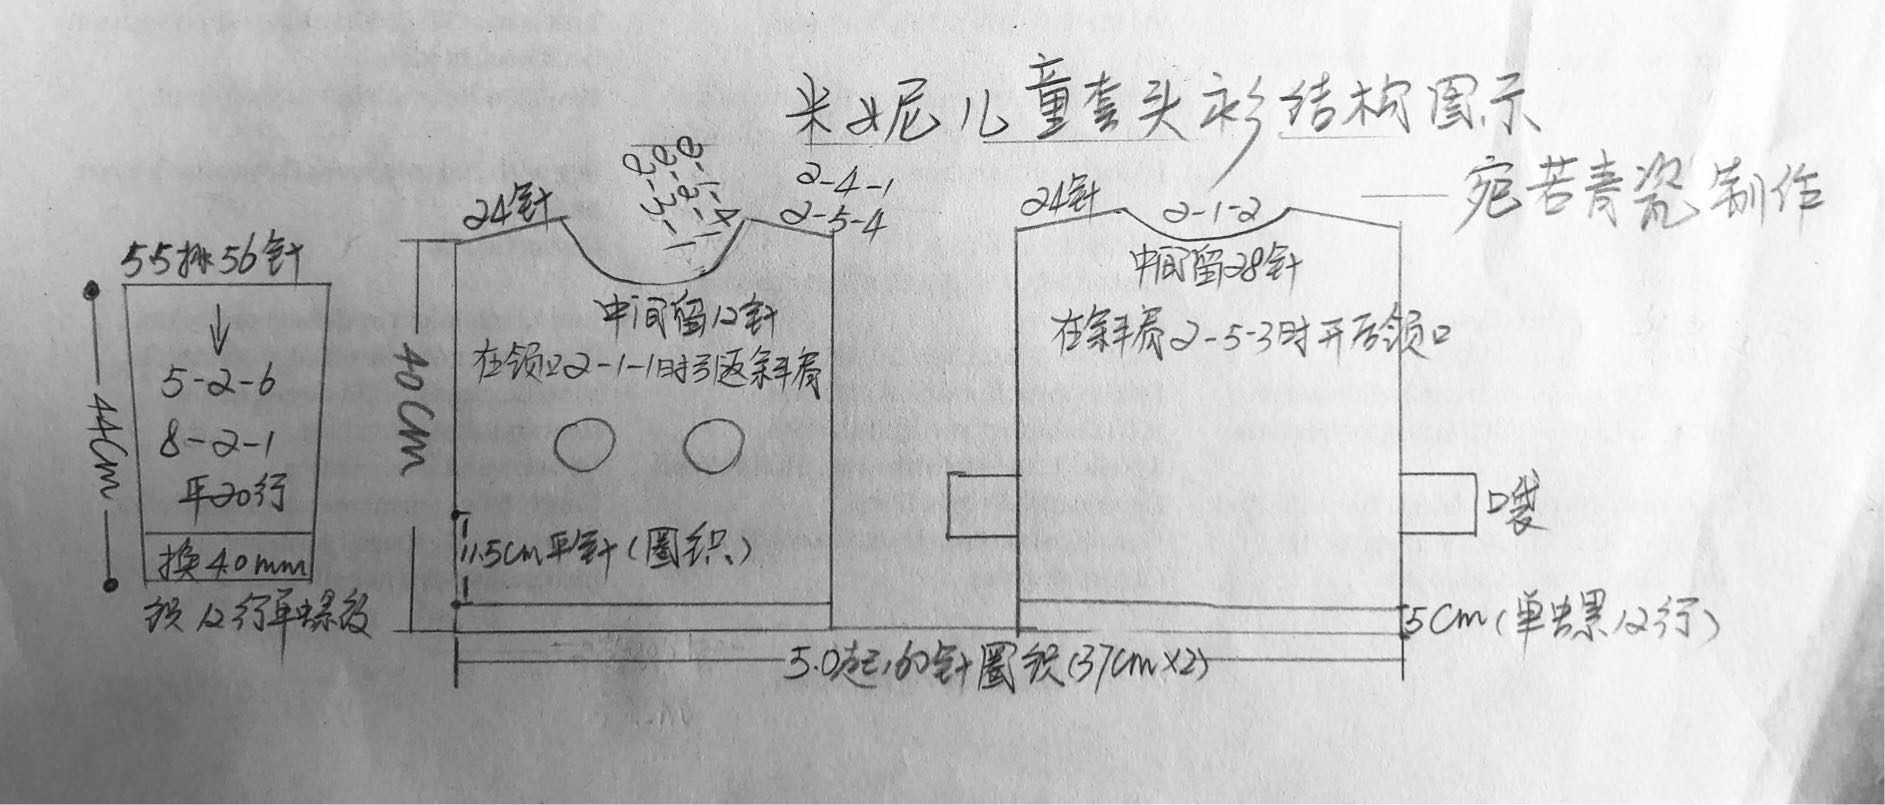 米妮儿童套头衫结构图示
——宛若青瓷制作
55挑56针
↓
5-2-6
8-2-1
平20行
换4.0mm
织12行单螺纹
44cm
40cm
24针
2-1-4
2-2-1
2-3-1
2-4-1
2-5-4
中间留12针
在领口2-1-1时引返斜肩
11.5cm平针(圈织)
24针
2-1-2
中间留28针
在斜肩2-5-3时开后领口
口袋
5cm(单螺12行)
5.0起160针圈织(37cm×2)